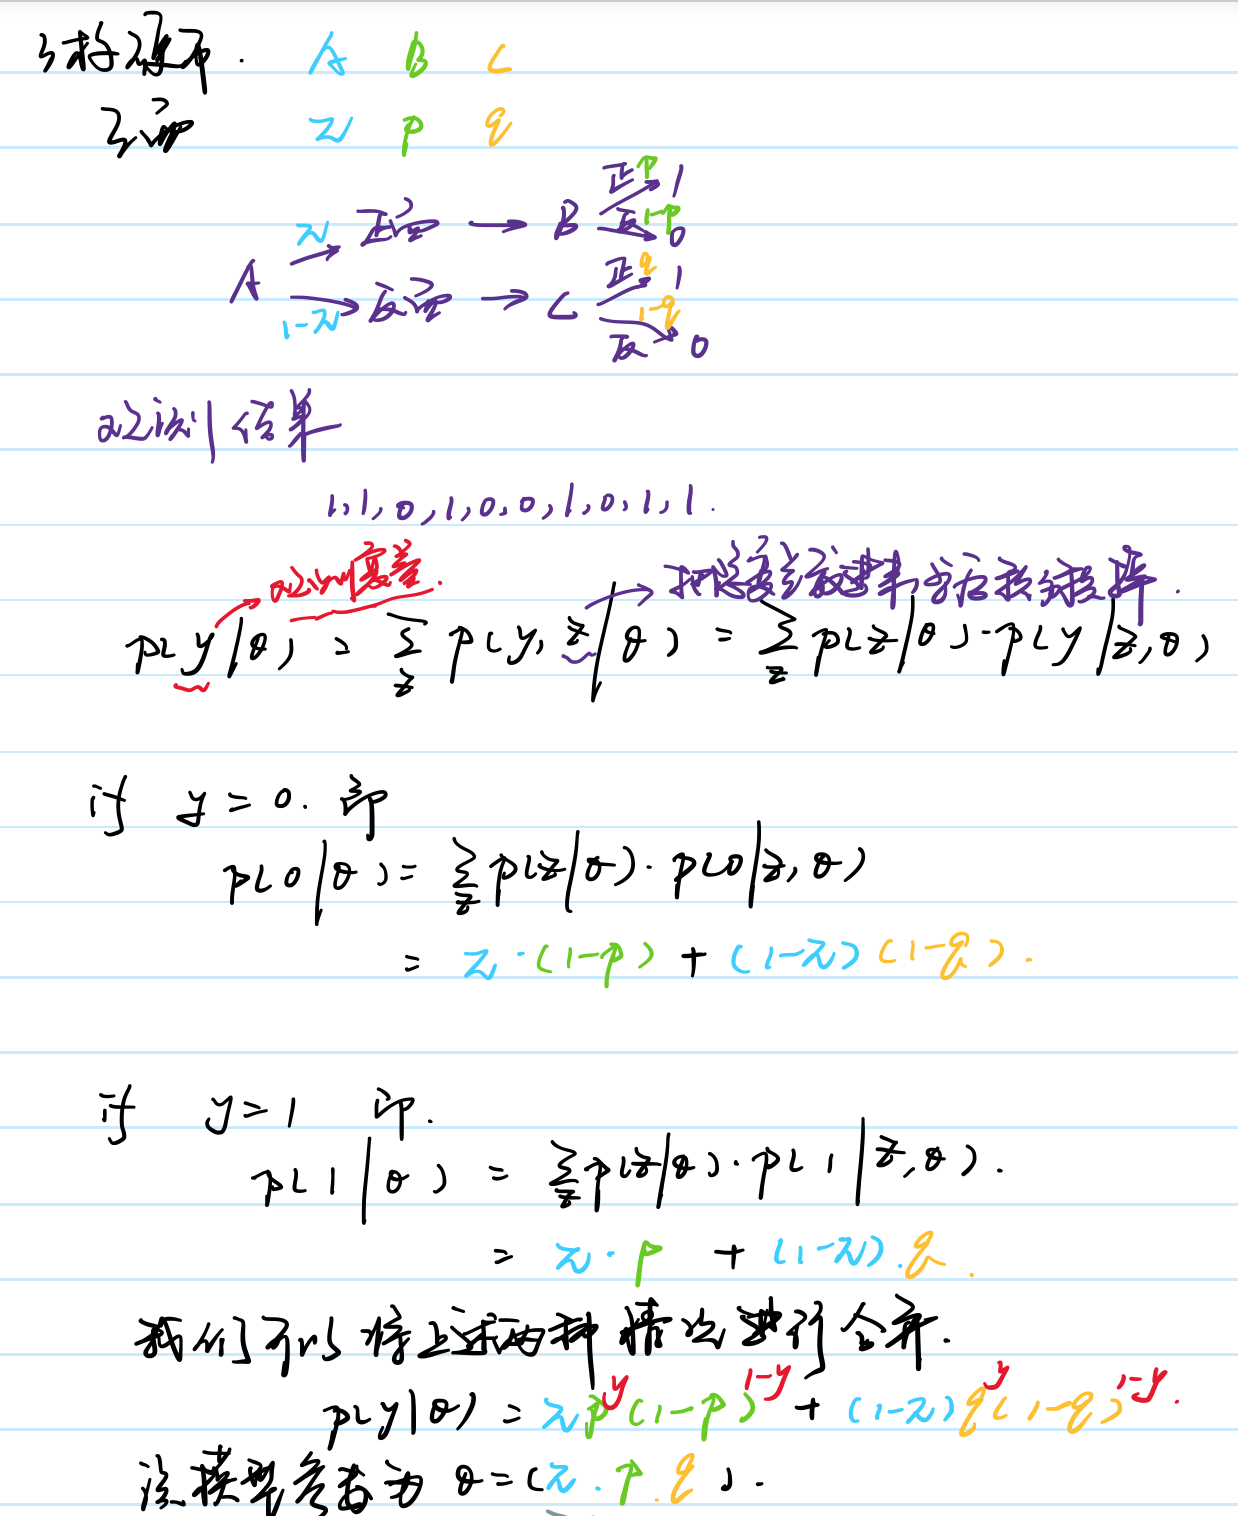 3枚硬币. A B C
正面 π p q
正 p 1
A π 正面 → B 反 1-p 0
1-π 反面 → C 正 q 1
1-q 反 0
观测结果
1,1,0,1,0,0,1,0,1,1.
观测变量. 把隐变量
p(y|θ) = Σ_z p(y,z|θ) = Σ_z p(z|θ)·p(y|z,θ)
if y=0. 即
p(0|θ) = Σ_z p(z|θ)·p(0|z,θ)
= π·(1-p) + (1-π)(1-q).
if y=1 即.
p(1|θ) = Σ_z p(z|θ)·p(1|z,θ).
= π·p + (1-π).q.
我们可以将上述两种情况进行合并.
p(y|θ) = πp^y(1-p)^{1-y} + (1-π)q^y(1-q)^{1-y}.
该模型参数为 θ=(π.p.q).